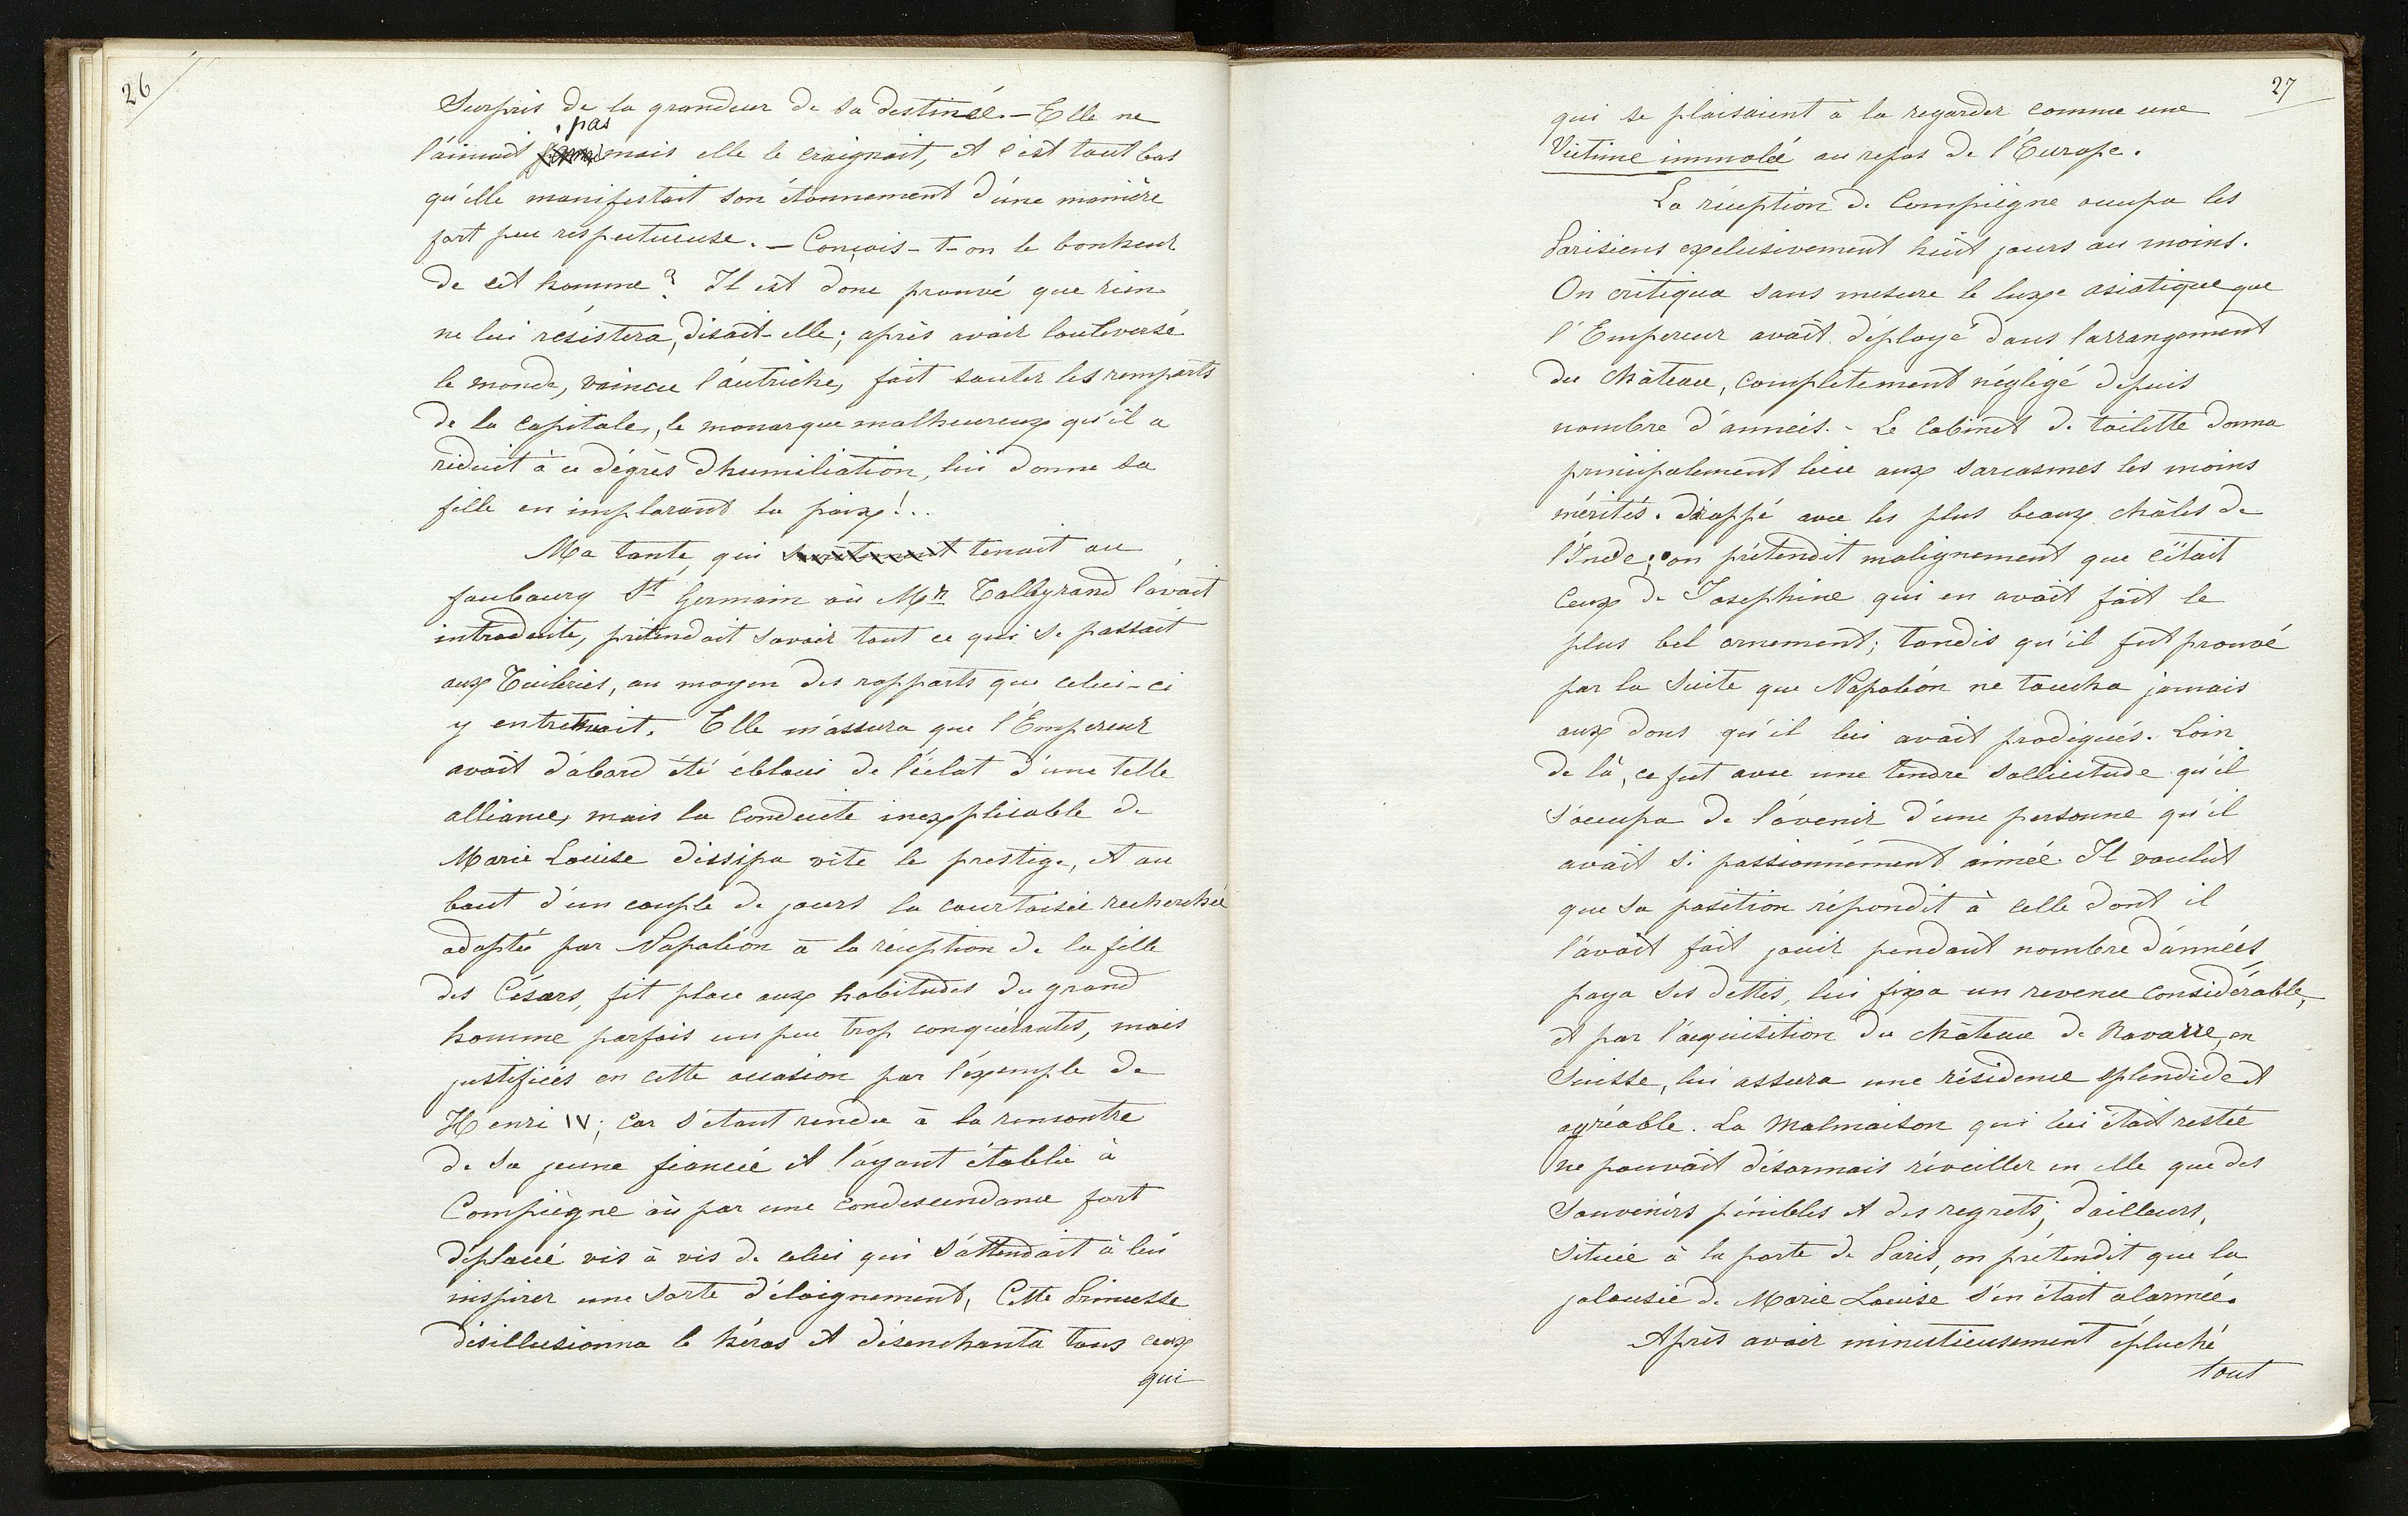 26
Surpris de la grandeur de sa destinée. - Elle ne
pas
l'aimait mais elle le craignait, et c'est tout bas
qu'elle manifestait son étonnement d'une manière
fort peu respectueuse. - Conçois-t-on le bonheur
de cet homme? Il est donc prouvé que rien
ne lui résistera, disait-elle; après avoir bouleversé
le monde, vaincu l'autriche, fait sauter les remparts
de la capitale, le monarque malheureux qu'il a
réduit à ce dégrès d'humiliation, lui donne sa
fille en implorant la paix!..
Ma tante, qui tenait au
faubourg St Germain où Mr. Talleyrand l'avait
introduite, prétendait savoir tout ce qui se passait
aux Tuileries, au moyen des rapports que celui-ci
y entretenait. Elle m'assura que l'Empereur
avait d'abord été ébloui de l'éclat d'une telle
alliance, mais la conduite inexplicable de
Marie Louise dissipa vite le prestige, et au
bout d'un couple de jours la courtoisie recherchée
adoptée par Napoléon à la réception de la fille
des Césars, fit place aux habitudes du grand
homme parfois un peu trop conquérantes, mais
justifiées en cette occasion par l'exemple de
Henri IV; car s'étant rendu à la rencontre
de sa jeune fiancée et l'ayant établie à
Compiègne où par une condescendance fort
déplacé vis à vis de celui qui s'attendait à lui
inspirer une sorte d'éloignement, Cette Princesse
désillusionna le héros et désenchanta tous ceux
qui
27
qui se plaisaient à la regarder comme une
Victime immolée au repos de l'Europe.
La réception de Compiègne occupa les
Parisiens exclusivement huit jours au moins.
On critiqua sans mesure le luxe asiatique que
l'Empereur avait déployé dans l'arrangement
du château, complètement négligé depuis
nombre d'années. - Le Cabinet de toilette donna
principalement lieu aux sarcasmes les moins
mérités. drappé avec les plus beaux châles de
l'Inde; on prétendit malignement que c'était
Ceux de Josephine qui en avait fait le
plus bel ornement; tandis qu'il fut prouvé
par la suite que Napoléon ne toucha jamais
aux dons qu'il lui avait prodigués. Loin
de là, ce fut avec une tendre sollicitude qu'il
s'occupa de l'avenir d'une personne qu'il
avait si passionnément aimée. Il voulut
que sa position répondit à celle dont il
l'avait fait jouir pendant nombre d'années,
paya ses dettes, lui fixa un revenu considérable,
et par l'acquisition du château de Navarre, en
Suisse, lui assura une résidence splendide et
agréable. La Malmaison qui lui était restée
ne pouvait désormais réveiller en elle que des
Souvenirs pénibles et des regrets; d'ailleurs,
située à la porte de Paris, on prétendit que la
jalousie de Marie Louise s'en était alarmée.
Après avoir minutieusement épluché
tout